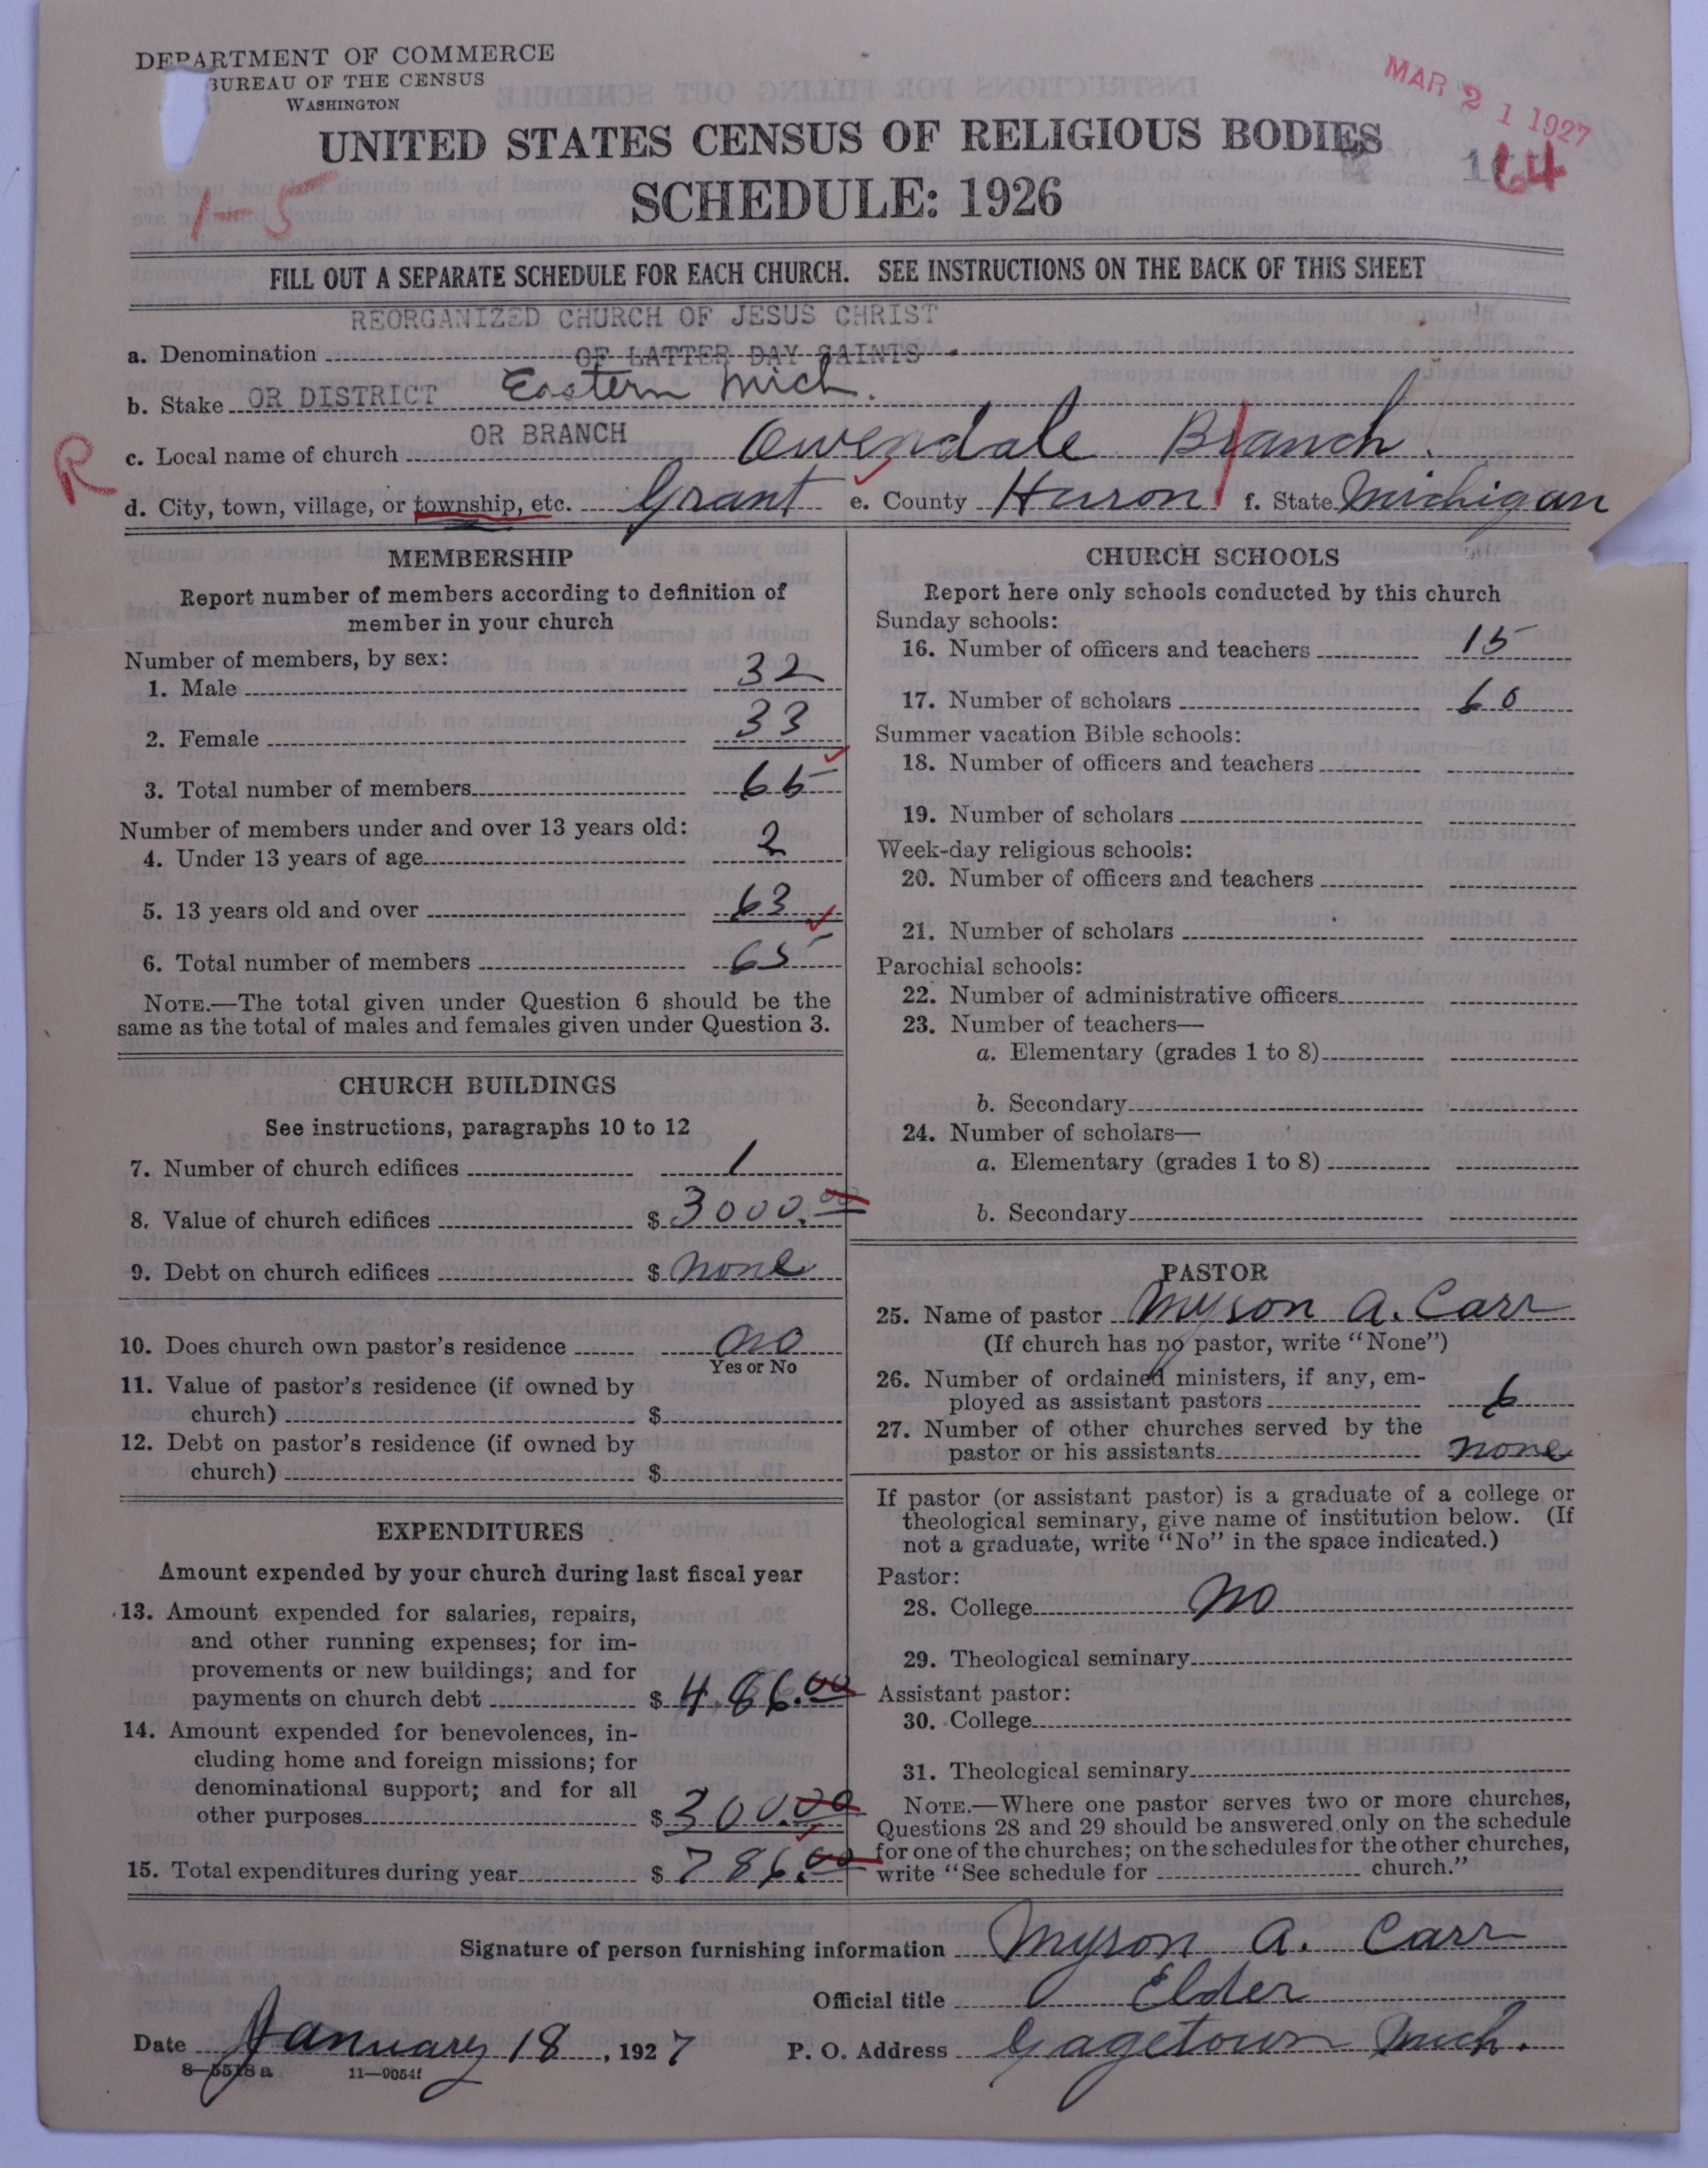 DEPARTMENT OF COMMERCE
BUREAU OF THE CENSUS
WASHINGTON
MAR 21 1927
UNITED STATES CENSUS OF RELIGIOUS BODIES
64
1-5
SCHEDULE: 1926
FILL OUT A SEPARATE SCHEDULE FOR EACH CHURCH. SEE INSTRUCTIONS ON THE BACK OF THIS SHEET
REORGANIZED CHURCH OF JESUS CHRIST
a. Denomination OF LATTER DAY SAINTS
b. Stake OR DISTRICT Eastern Mich.
OR BRANCH
c. Local name of church Owendale Branch.
R
d. City, town, village, or township, etc. Grant e. County Huron f. State Michigan
MEMBERSHIP
Report number of members according to definition of
member in your church
Number of members, by sex:
1. Male 32
2. Female 33
3. Total number of members 65
Number of members under and over 13 years old:
4. Under 13 years of age 2
5. 13 years old and over 63
6. Total number of members 65
NOTE.—The total given under Question 6 should be the
same as the total of males and females given under Question 3.
CHURCH BUILDINGS
See instructions, paragraphs 10 to 12
7. Number of church edifices 1
8. Value of church edifices $ 3000.00
9. Debt on church edifices $ none
10. Does church own pastor's residence no
Yes or No
11. Value of pastor's residence (if owned by
church) $
12. Debt on pastor's residence (if owned by
church) $
EXPENDITURES
Amount expended by your church during last fiscal year
13. Amount expended for salaries, repairs,
and other running expenses; for im-
provements or new buildings; and for
payments on church debt $ 486.00
14. Amount expended for benevolences, in-
cluding home and foreign missions; for
denominational support; and for all
other purposes $ 300.00
15. Total expenditures during year $ 786.00
CHURCH SCHOOLS
Report here only schools conducted by this church
Sunday schools:
16. Number of officers and teachers 15
17. Number of scholars 60
Summer vacation Bible schools:
18. Number of officers and teachers
19. Number of scholars
Week-day religious schools:
20. Number of officers and teachers
21. Number of scholars
Parochial schools:
22. Number of administrative officers
23. Number of teachers—
a. Elementary (grades 1 to 8)
b. Secondary
24. Number of scholars—
a. Elementary (grades 1 to 8)
b. Secondary
PASTOR
25. Name of pastor Myron A. Carr
(If church has no pastor, write "None")
26. Number of ordained ministers, if any, em-
ployed as assistant pastors 6
27. Number of other churches served by the
pastor or his assistants none
If pastor (or assistant pastor) is a graduate of a college or
theological seminary, give name of institution below. (If
not a graduate, write "No" in the space indicated.)
Pastor:
28. College no
29. Theological seminary
Assistant pastor:
30. College
31. Theological seminary
NOTE.—Where one pastor serves two or more churches,
Questions 28 and 29 should be answered only on the schedule
for one of the churches; on the schedules for the other churches,
write "See schedule for church."
Signature of person furnishing information Myron A. Carr
Official title Elder
Date January 18, 1927 P. O. Address Gagetown Mich.
8—5518 a 11—9054f